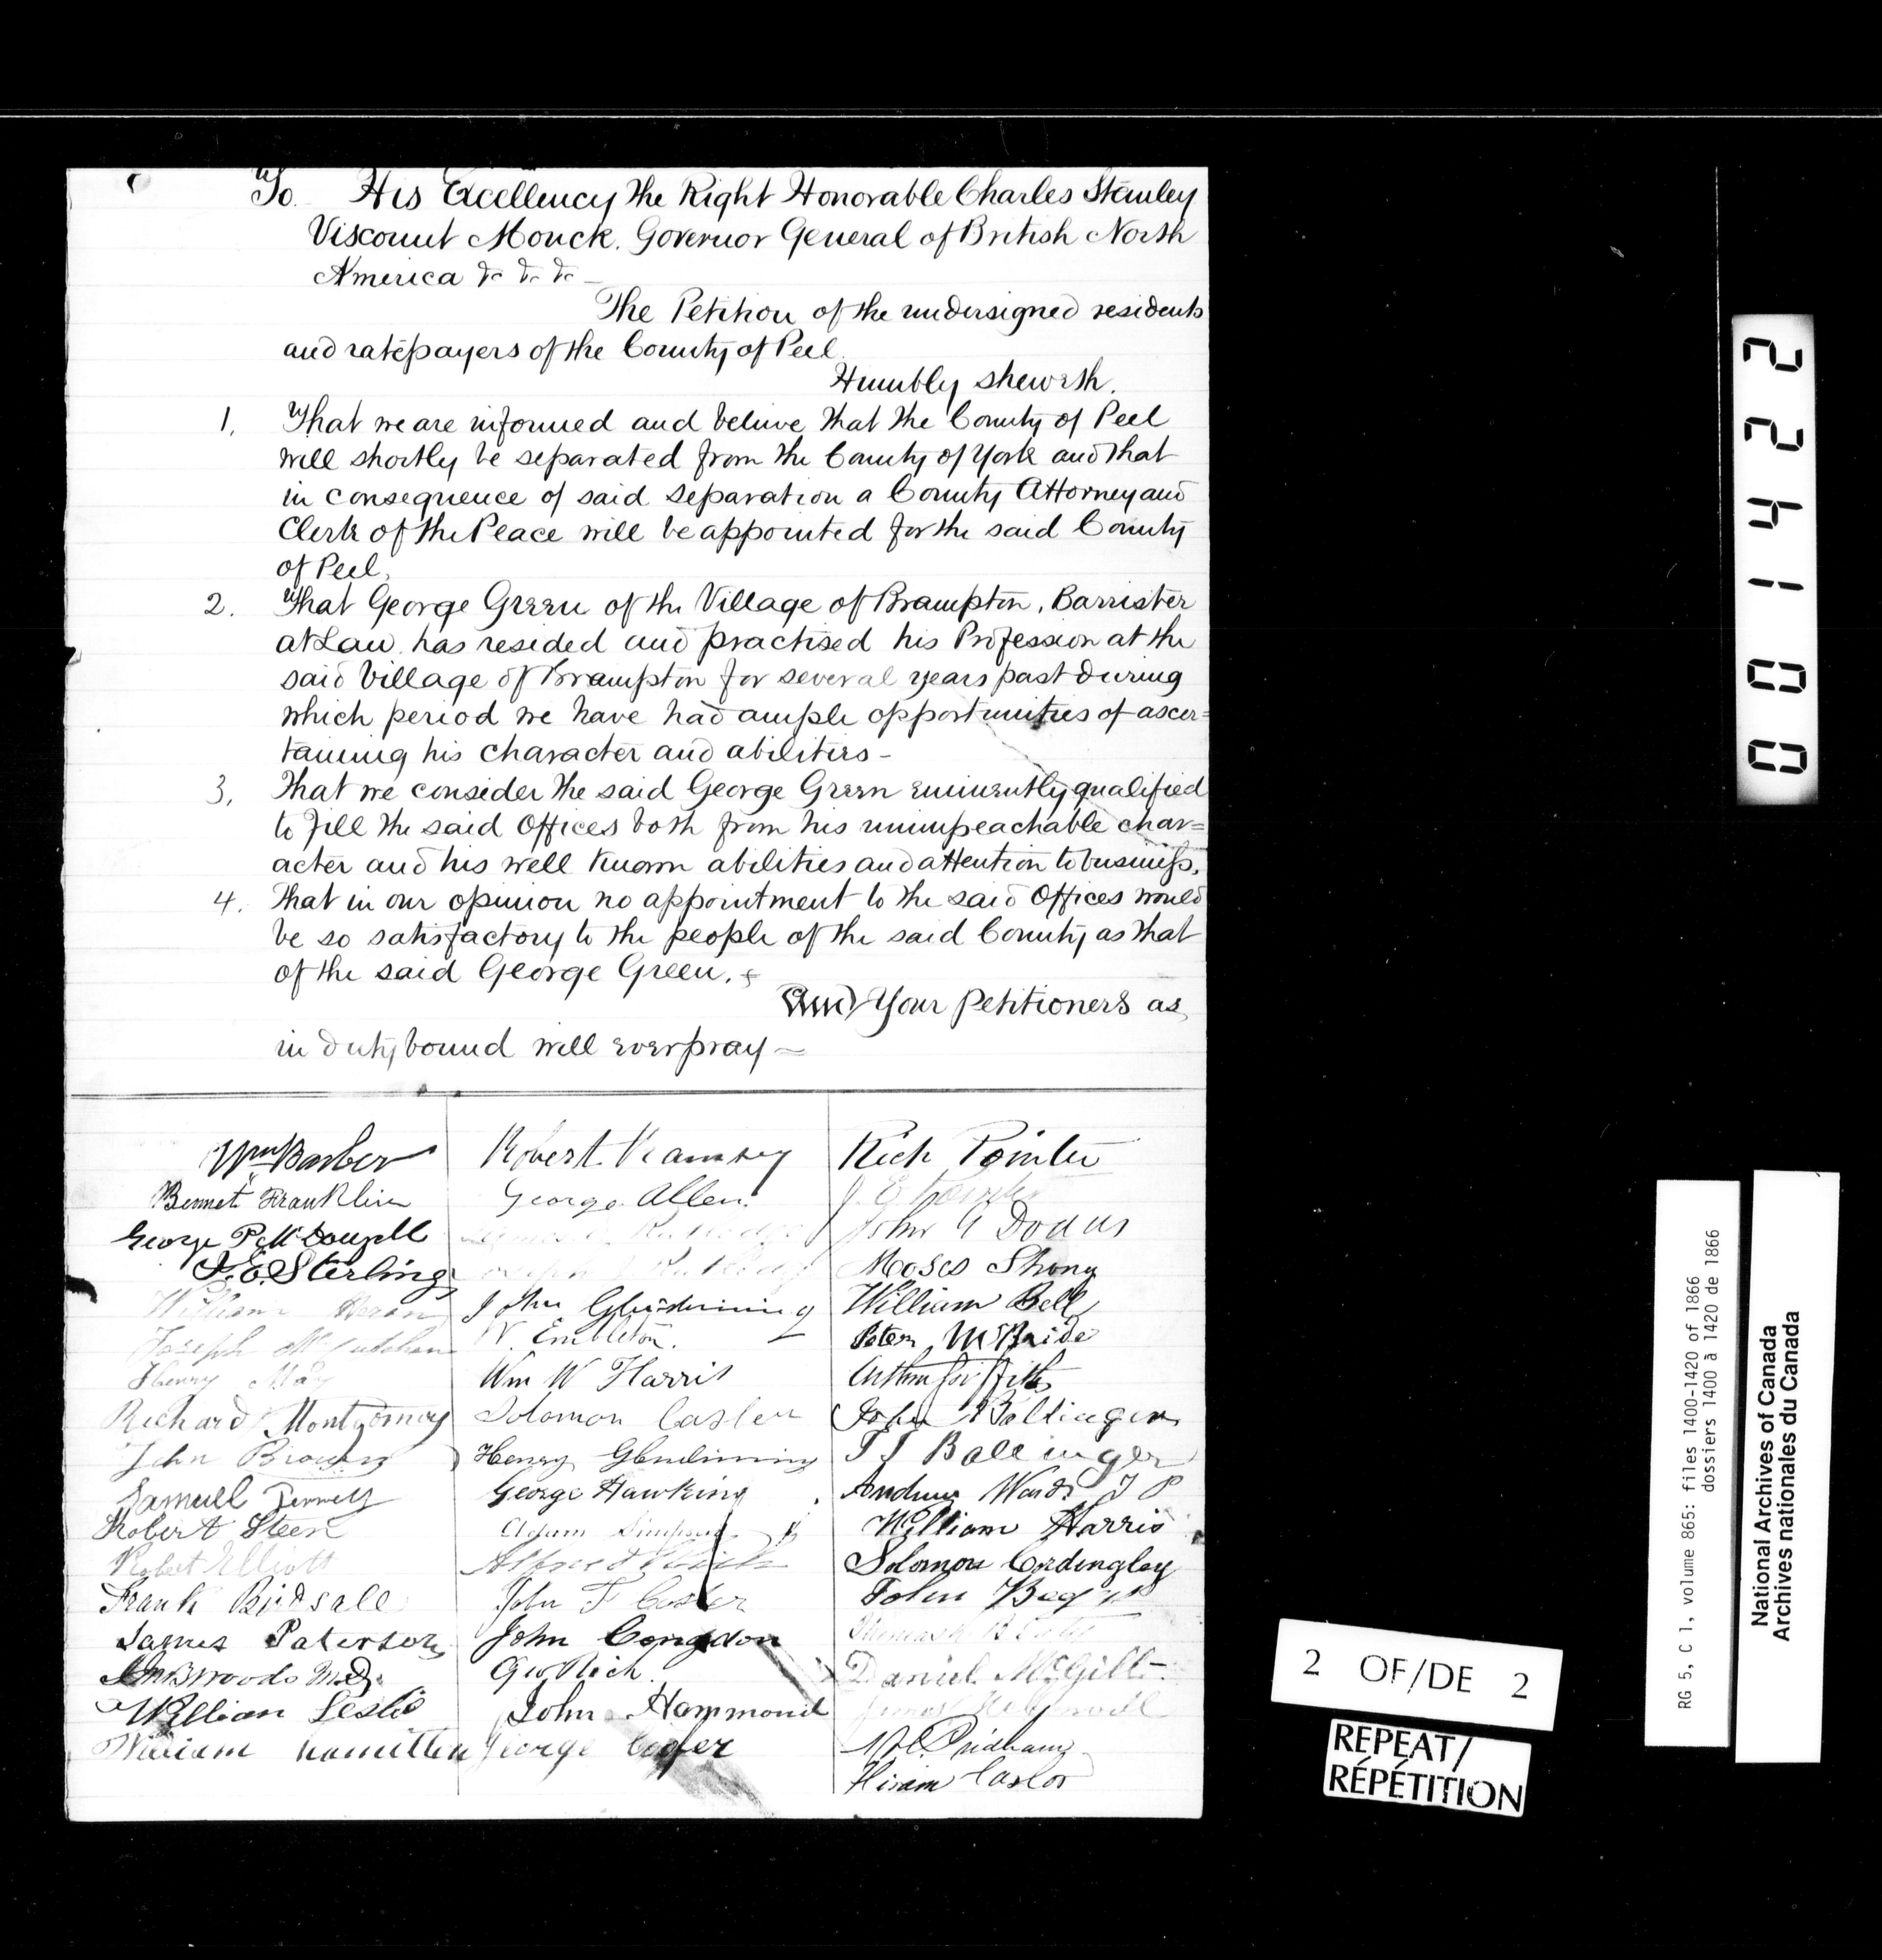 To His Excellency The Right Honorable Charles Stanley
Viscount Monck. Governor General of British North
America &c &c &c
The Petition of the undersigned residents
and ratepayers of the County of Peel.
Humbly sheweth.
1. That we are informed and believe that the County of Peel
will shortly be separated from the County of York and that
in consequence of said separation a County Attorney and
Clerk of the Peace will be appointed for the said County
of Peel.
2. That George Green of the Village of Brampton, Barrister
at Law has resided and practised his Profession at the
said Village of Brampton for several years past during
which period we have had ample opportunities of ascer=
taining his character and abilities -
3. That we consider the said George Green eminently qualified
to fill the said Offices both from his unimpeachable char=
acter and his well known abilities and attention to business.
4. That in our opinion no appointment to the said Offices would
be so satisfactory to the people of the said County as that
of the said George Green.
And Your Petitioners as
in duty bound will ever pray -
Wm Barber
Bennet Franklin
George P McDougall
J. E. Sterling
William
Joseph McCutcheon
Henry May
Richard Montgomery
John Brown
Samuel
Robert Steen
Robert Elliott
Frank Birdsall
James Paterson
Woods M.D.
William Leslie
William Hamilton
Robert Ramsey
George Allen
Rutledge
Joseph Rutledge
John Glendinning
W. Embleton
Wm W Harris
Solomon Casler
Henry Glendinning
George Hawking
Adam Simpson
Alfred
John F Casler
John Congdon
Geo Rich
John Hammond
George
Rich Pointer
J. E. Pointer
John G Dodds
Moses Strong
William Bell
Peter McBride
Arthur
John Ballinger
Ballinger
Andrew Ward J P
William Harris
Solomon Cordingley
John
Thomas
Daniel McGill
James
Pridham
Hiram Caslor
001422
2 OF/DE 2
REPEAT/
RÉPÉTITION
RG 5, C 1, volume 865: files 1400-1420 of 1866
dossiers 1400 à 1420 de 1866
National Archives of Canada
Archives nationales du Canada